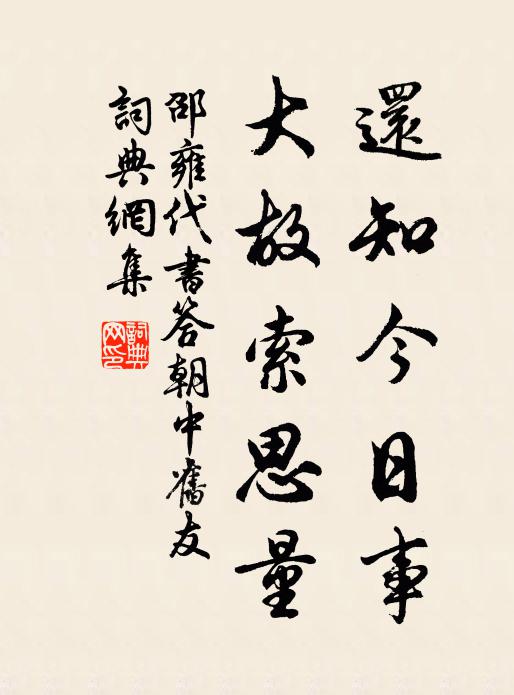 還知今日事
大故索思量
邵雍代書答朝中舊友
詞典網集
詞典网印